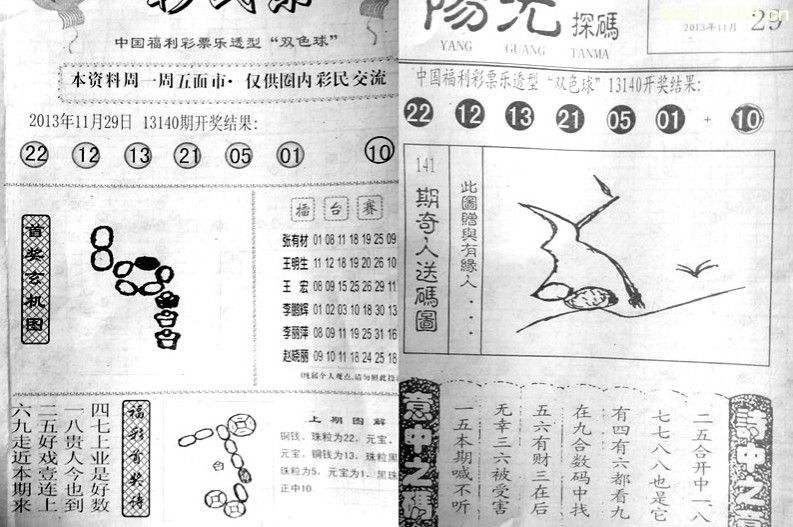 中国福利彩票乐透型“双色球”
本资料周一周五面市·仅供圈内彩民交流
2013年11月29日 13140期开奖结果:
22 12 13 21 05 01 10
首奖玄机图
擂台赛
张有材 01 08 11 18 19 25 09
王明生 11 12 18 19 20 26 10
王宏 08 09 15 25 26 29 11
李鹏辉 01 02 03 10 18 30 13
李丽萍 08 09 11 19 25 31 16
赵晓丽 09 10 11 18 24 25 18
(纯属个人观点,请勿照此投
四七上业是好数
一八贵人今也到
二五好戏壹连上
六九走近本期来
福彩首奖诗
上期图解
铜钱、珠粒为22,元宝、
元宝、铜钱为13、珠粒黑
珠粒为5、元宝为1、黑珠
正中10
陽光探碼
YANG GUANG TANMA
2013年11月 29
中国福利彩票乐透型“双色球”13140开奖结果:
22 12 13 21 05 01 + 10
141期奇人送碼圖
此圖贈與有緣人....
二五合开中一八
七七八八也是它
有四有六都看九
在九合数码中找
五六有财三在后
无幸三六被受害
一五本期喊不听